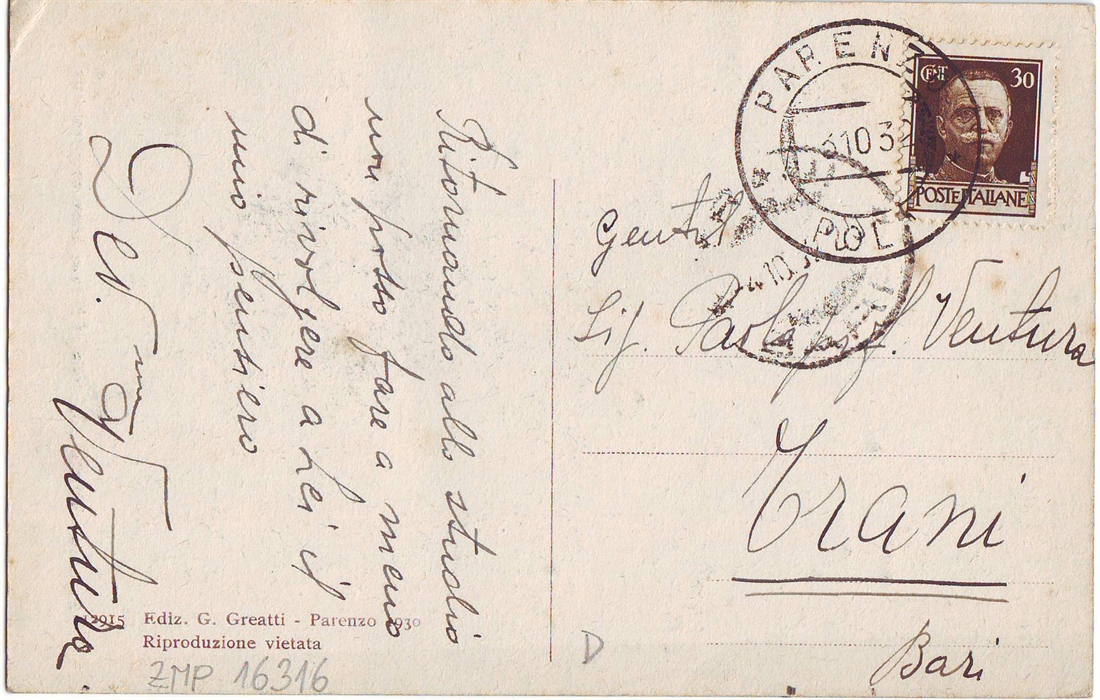 Ritornando allo studio
non posso fare a meno
di rivolgere a Lei il
mio pensiero
Dev.mo
Ventura
Gentil
Sig. Paola prof. Ventura
Trani
Bari
CENT 30
POSTE ITALIANE
PARENZO
3 10 3
POL
4 10 3
12915 Ediz. G. Greatti - Parenzo 1930
Riproduzione vietata
ZMP 16316
D